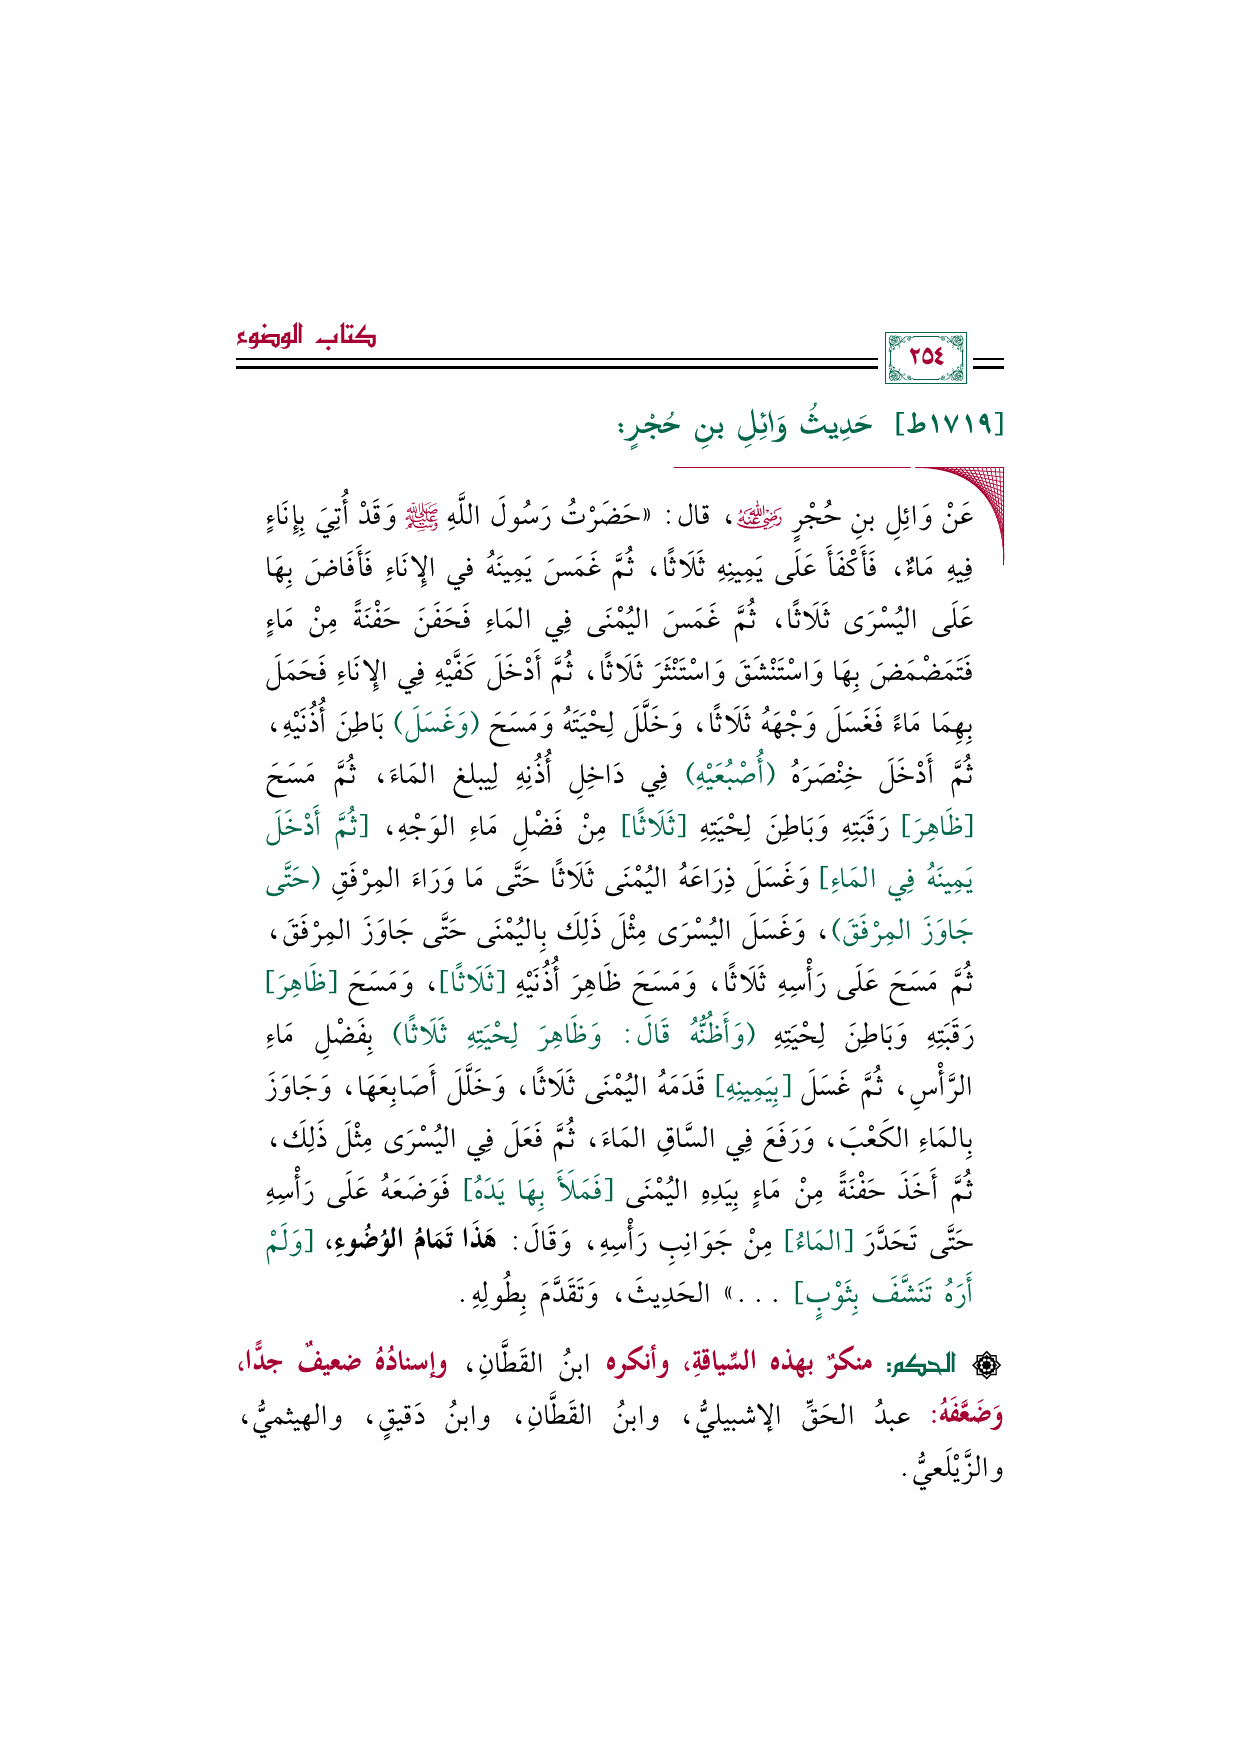 كتاب الوضوء
٢٥٤
[١٧١٩ط] حَدِيثُ وَائِلِ بنِ حُجْرٍ:
عَنْ وَائِلِ بنِ حُجْرٍ رضي الله عنه، قال: «حَضَرْتُ رَسُولَ اللَّهِ ﷺ وَقَدْ أُتِيَ بِإِنَاءٍ
فِيهِ مَاءٌ، فَأَكْفَأَ عَلَى يَمِينِهِ ثَلَاثًا، ثُمَّ غَمَسَ يَمِينَهُ في الإِنَاءِ فَأَفَاضَ بِهَا
عَلَى اليُسْرَى ثَلَاثًا، ثُمَّ غَمَسَ اليُمْنَى فِي المَاءِ فَحَفَنَ حَفْنَةً مِنْ مَاءٍ
فَتَمَضْمَضَ بِهَا وَاسْتَنْشَقَ وَاسْتَنْثَرَ ثَلَاثًا، ثُمَّ أَدْخَلَ كَفَّيْهِ فِي الإِنَاءِ فَحَمَلَ
بِهِمَا مَاءً فَغَسَلَ وَجْهَهُ ثَلَاثًا، وَخَلَّلَ لِحْيَتَهُ وَمَسَحَ (وَغَسَلَ) بَاطِنَ أُذُنَيْهِ،
ثُمَّ أَدْخَلَ خِنْصَرَهُ (أُصْبُعَيْهِ) فِي دَاخِلِ أُذُنِهِ لِيبلغ المَاءَ، ثُمَّ مَسَحَ
[ظَاهِرَ] رَقَبَتِهِ وَبَاطِنَ لِحْيَتِهِ [ثَلَاثًا] مِنْ فَضْلِ مَاءِ الوَجْهِ، [ثُمَّ أَدْخَلَ
يَمِينَهُ فِي المَاءِ] وَغَسَلَ ذِرَاعَهُ اليُمْنَى ثَلَاثًا حَتَّى مَا وَرَاءَ المِرْفَقِ (حَتَّى
جَاوَزَ المِرْفَقَ)، وَغَسَلَ اليُسْرَى مِثْلَ ذَلِكَ بِاليُمْنَى حَتَّى جَاوَزَ المِرْفَقَ،
ثُمَّ مَسَحَ عَلَى رَأْسِهِ ثَلَاثًا، وَمَسَحَ ظَاهِرَ أُذُنَيْهِ [ثَلَاثًا]، وَمَسَحَ [ظَاهِرَ]
رَقَبَتِهِ وَبَاطِنَ لِحْيَتِهِ (وَأَظُنُّهُ قَالَ: وَظَاهِرَ لِحْيَتِهِ ثَلَاثًا) بِفَضْلِ مَاءِ
الرَّأْسِ، ثُمَّ غَسَلَ [بِيَمِينِهِ] قَدَمَهُ اليُمْنَى ثَلَاثًا، وَخَلَّلَ أَصَابِعَهَا، وَجَاوَزَ
بِالمَاءِ الكَعْبَ، وَرَفَعَ فِي السَّاقِ المَاءَ، ثُمَّ فَعَلَ فِي اليُسْرَى مِثْلَ ذَلِكَ،
ثُمَّ أَخَذَ حَفْنَةً مِنْ مَاءٍ بِيَدِهِ اليُمْنَى [فَمَلَأَ بِهَا يَدَهُ] فَوَضَعَهُ عَلَى رَأْسِهِ
حَتَّى تَحَدَّرَ [المَاءُ] مِنْ جَوَانِبِ رَأْسِهِ، وَقَالَ: هَذَا تَمَامُ الوُضُوءِ، [وَلَمْ
أَرَهُ تَنَشَّفَ بِثَوْبٍ] ...» الحَدِيثَ، وَتَقَدَّمَ بِطُولِهِ.
الحكم: منكرٌ بهذه السِّياقةِ، وأنكره ابنُ القَطَّانِ، وإسنادُهُ ضعيفٌ جدًّا،
وَضَعَّفَهُ: عبدُ الحَقِّ الإشبيليُّ، وابنُ القَطَّانِ، وابنُ دَقيقٍ، والهيثميُّ،
والزَّيْلَعيُّ.